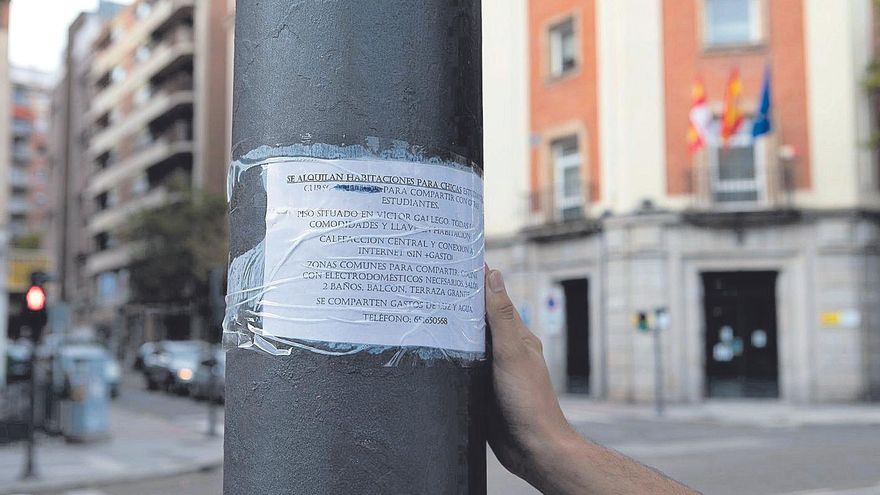 SE ALQUILAN HABITACIONES PARA CHICAS
PARA COMPARTIR CON
ESTUDIANTES.
PISO SITUADO EN VICTOR GALLEGO, TODAS
COMODIDADES Y LLAVE HABITACIÓN
CALEFACCIÓN CENTRAL Y CONEXIÓN
INTERNET (SIN +GASTO)
ZONAS COMUNES PARA COMPARTIR:
CON ELECTRODOMÉSTICOS NECESARIOS, SALÓN,
2 BAÑOS, BALCÓN, TERRAZA
SE COMPARTEN GASTOS DE LUZ Y AGUA.
TELÉFONO: